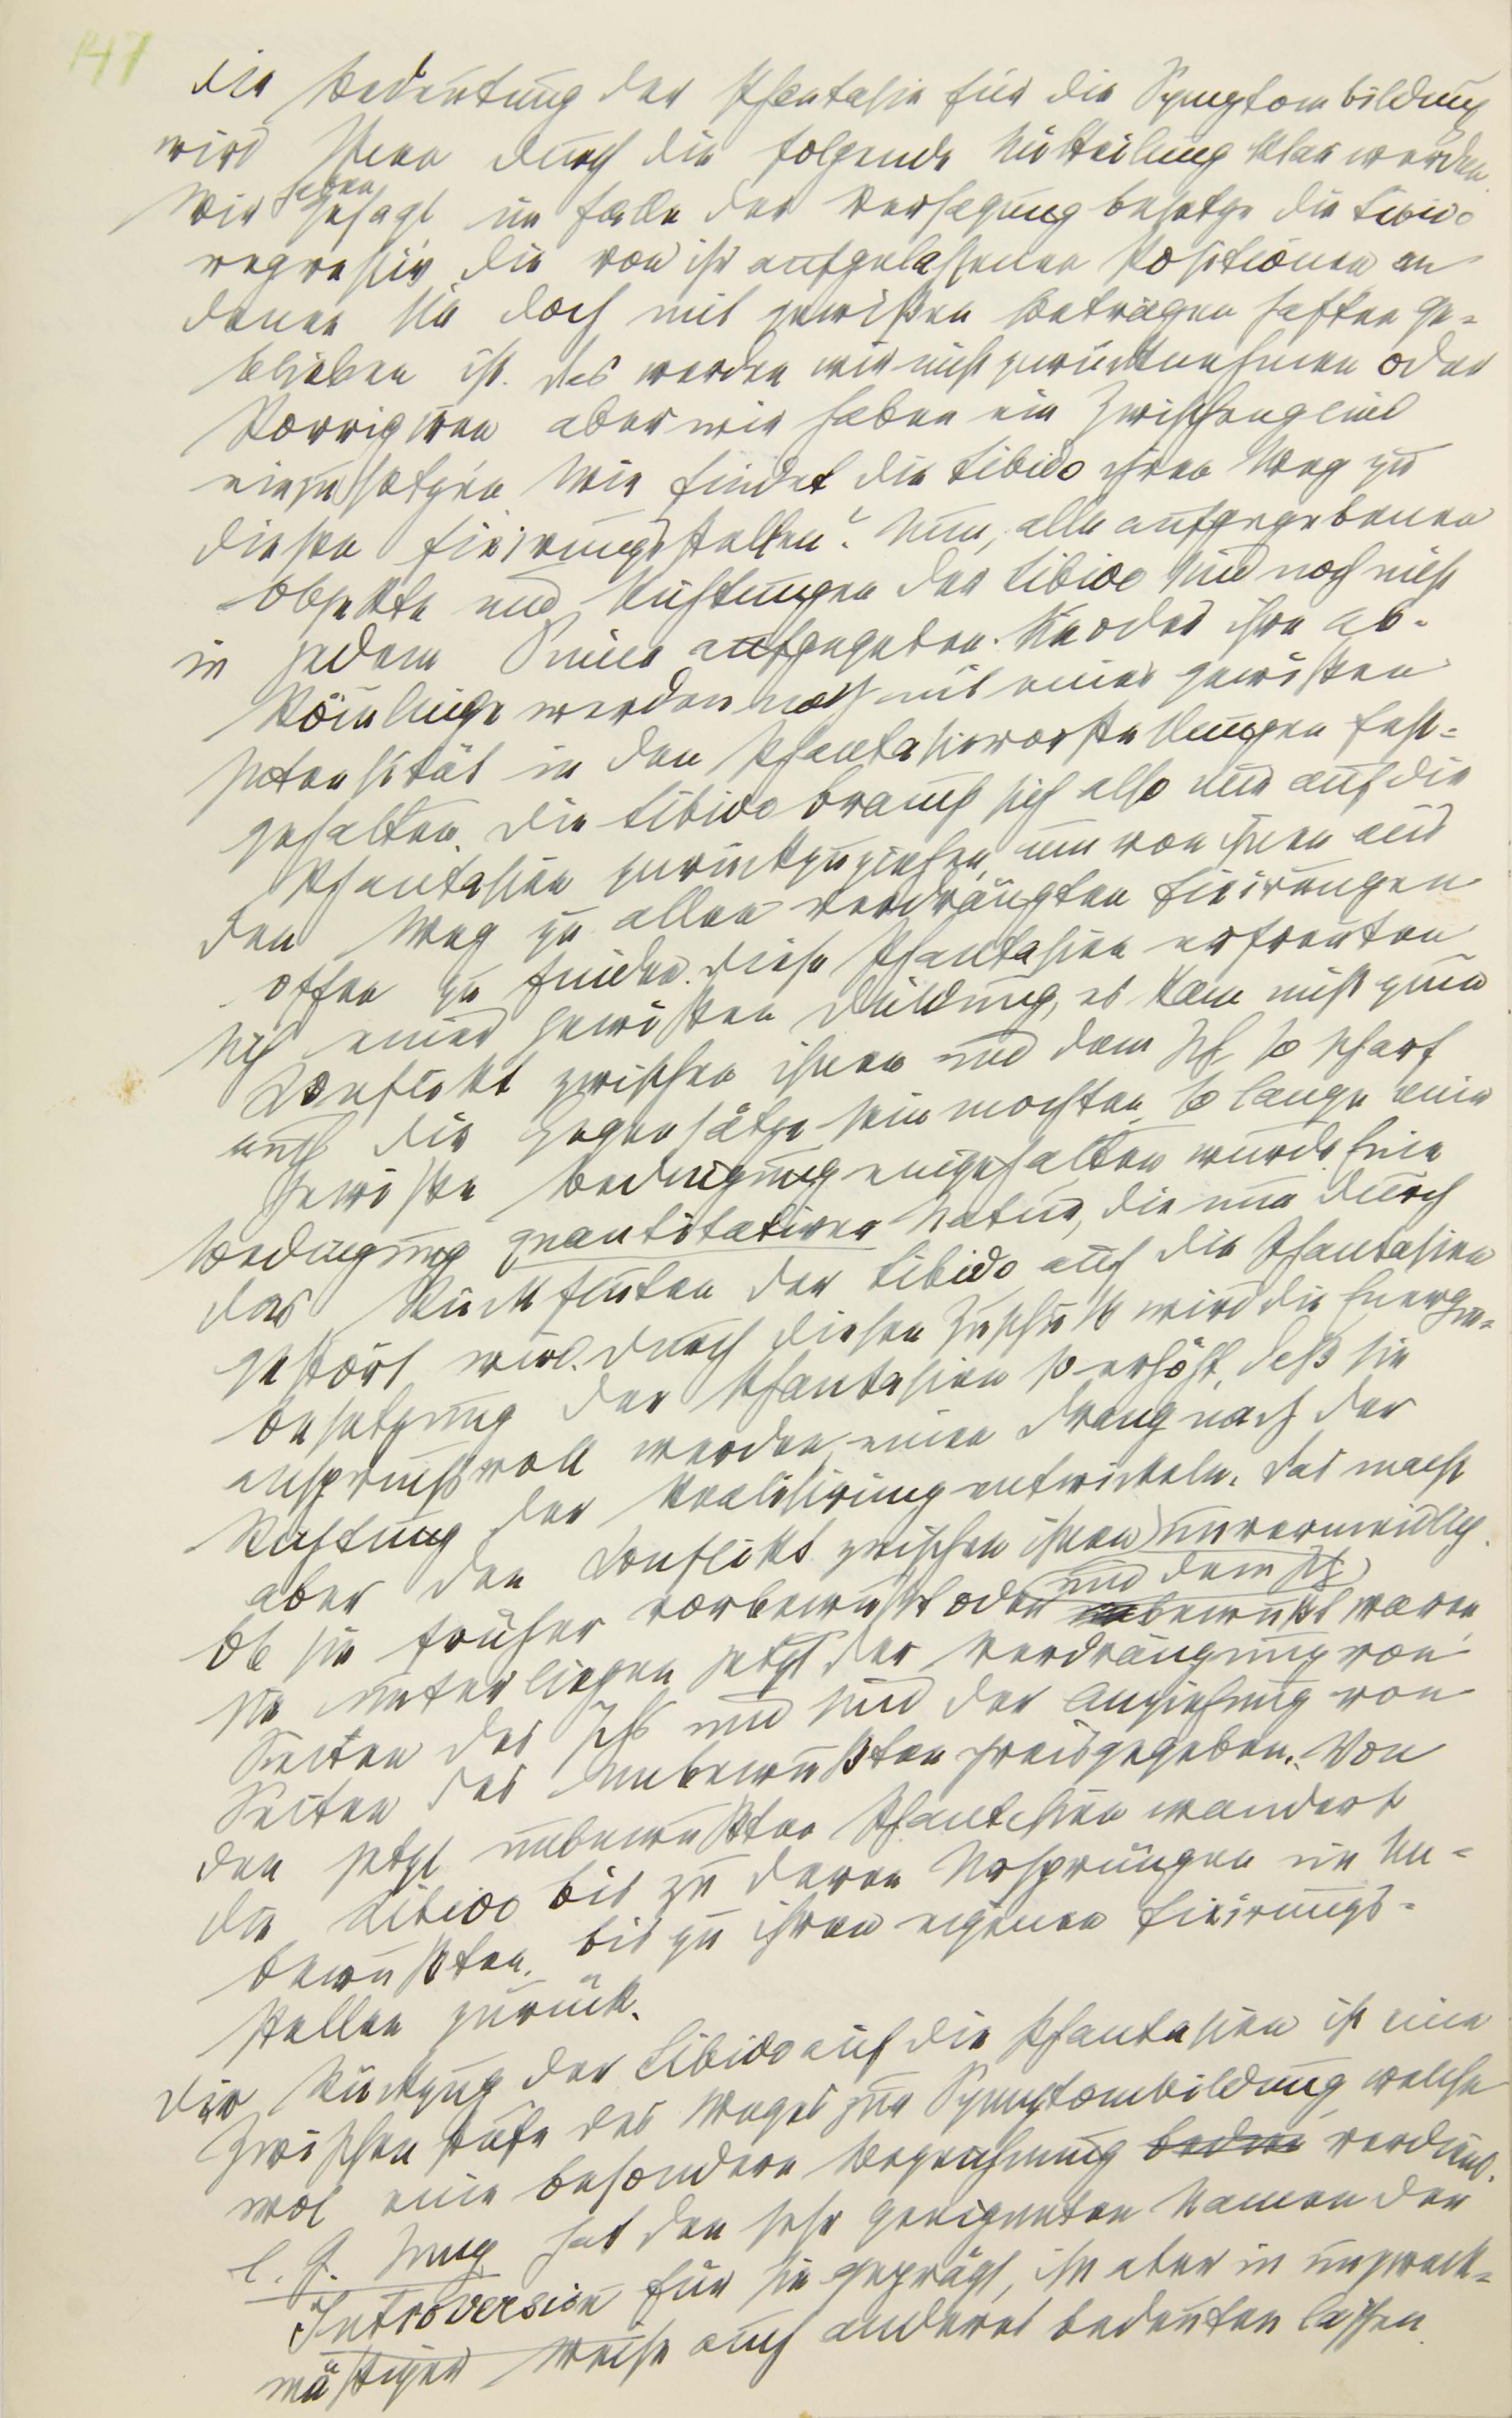 147
Die Bedeutung der Phantasie für die Symptombildung
wird Ihnen durch die folgende Mitteilung klar werden.
Wir haben gesagt im Falle der Versagung besetze die Libido
regressiv die von ihr aufgelassenen Positionen an
denen sie doch mit gewissen Beträgen haften ge-
blieben ist. Das werden wir nicht zurücknehmen oder
korrigiren aber wir haben ein Zwischenglied
einzusetzen. Wie findet die Libido ihren Weg zu
diesen Fixirungsstellen? Nun, alle aufgegebenen
Objekte und Richtungen der Libido sind noch nicht
in jedem Sinne aufgegeben. Sie oder ihre Ab-
kömmlinge werden noch mit einer gewissen
Intensität in den Phantasievorstellungen fest-
gehalten. Die Libido brauch sich also nur auf die
Phantasien zurückzuziehen, um von ihnen aus
den Weg zu allen verdrängten Fixirungen
offen zu finden. Diese Phantasien erfreuten
sich einer gewissen Duldung, es kam nicht zum
Conflikt zwischen ihnen und dem Ich, so scharf
auch die Gegensätze sein mochten, so lange eine
gewisse Bedingung eingehalten wurde. Eine
Bedingung quantitativer Natur, die nun durch
das Rückfluten der Libido auf die Phantasien
gestört wird. Durch diesen Zuschuß wird die Energie-
besetzung der Phantasien so erhöht, daß sie
anspruchsvoll werden, einen Drang nach der
Richtung der Realisirung entwickeln. Das macht
aber den Conflikt zwischen ihnen und dem Ich unvermeidlich.
Ob sie früher vorbewußt oder bewußt waren,
sie unterliegen jetzt der Verdrängung von
Seiten des Ichs und sind der Anziehung von
Seiten des Unbewußten preisgegeben. Von
den jetzt unbewußten Phantasien wandert
die Libido bis zu deren Ursprüngen im Un-
bewußten, bis zu ihren eigenen Fixirungs-
stellen zurück.
Der Rückzug der Libido auf die Phantasien ist eine
Zwischenstufe des Weges zur Symptombildung welche
wol eine besondere Bezeichnung verdient.
C. G. Jung hat den sehr geeigneten Namen der
Introversion für sie geprägt, ihn aber in unzweck-
mäßiger Weise auch anderes bedeuten lassen.